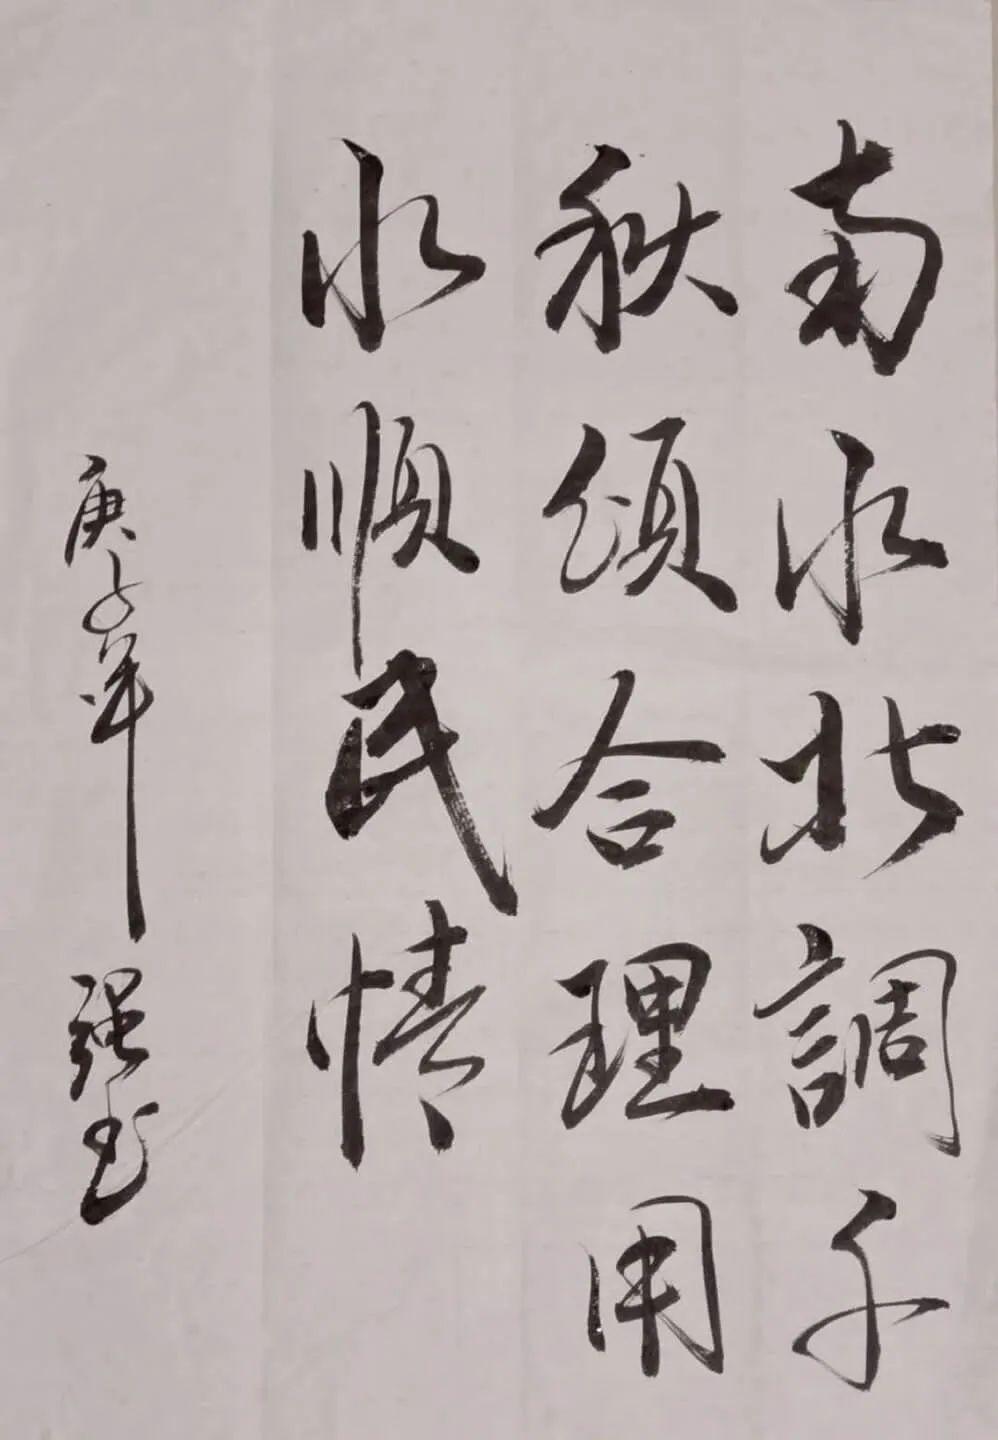 南水北調千
秋頌合理用
水順民情
庚子年 强书